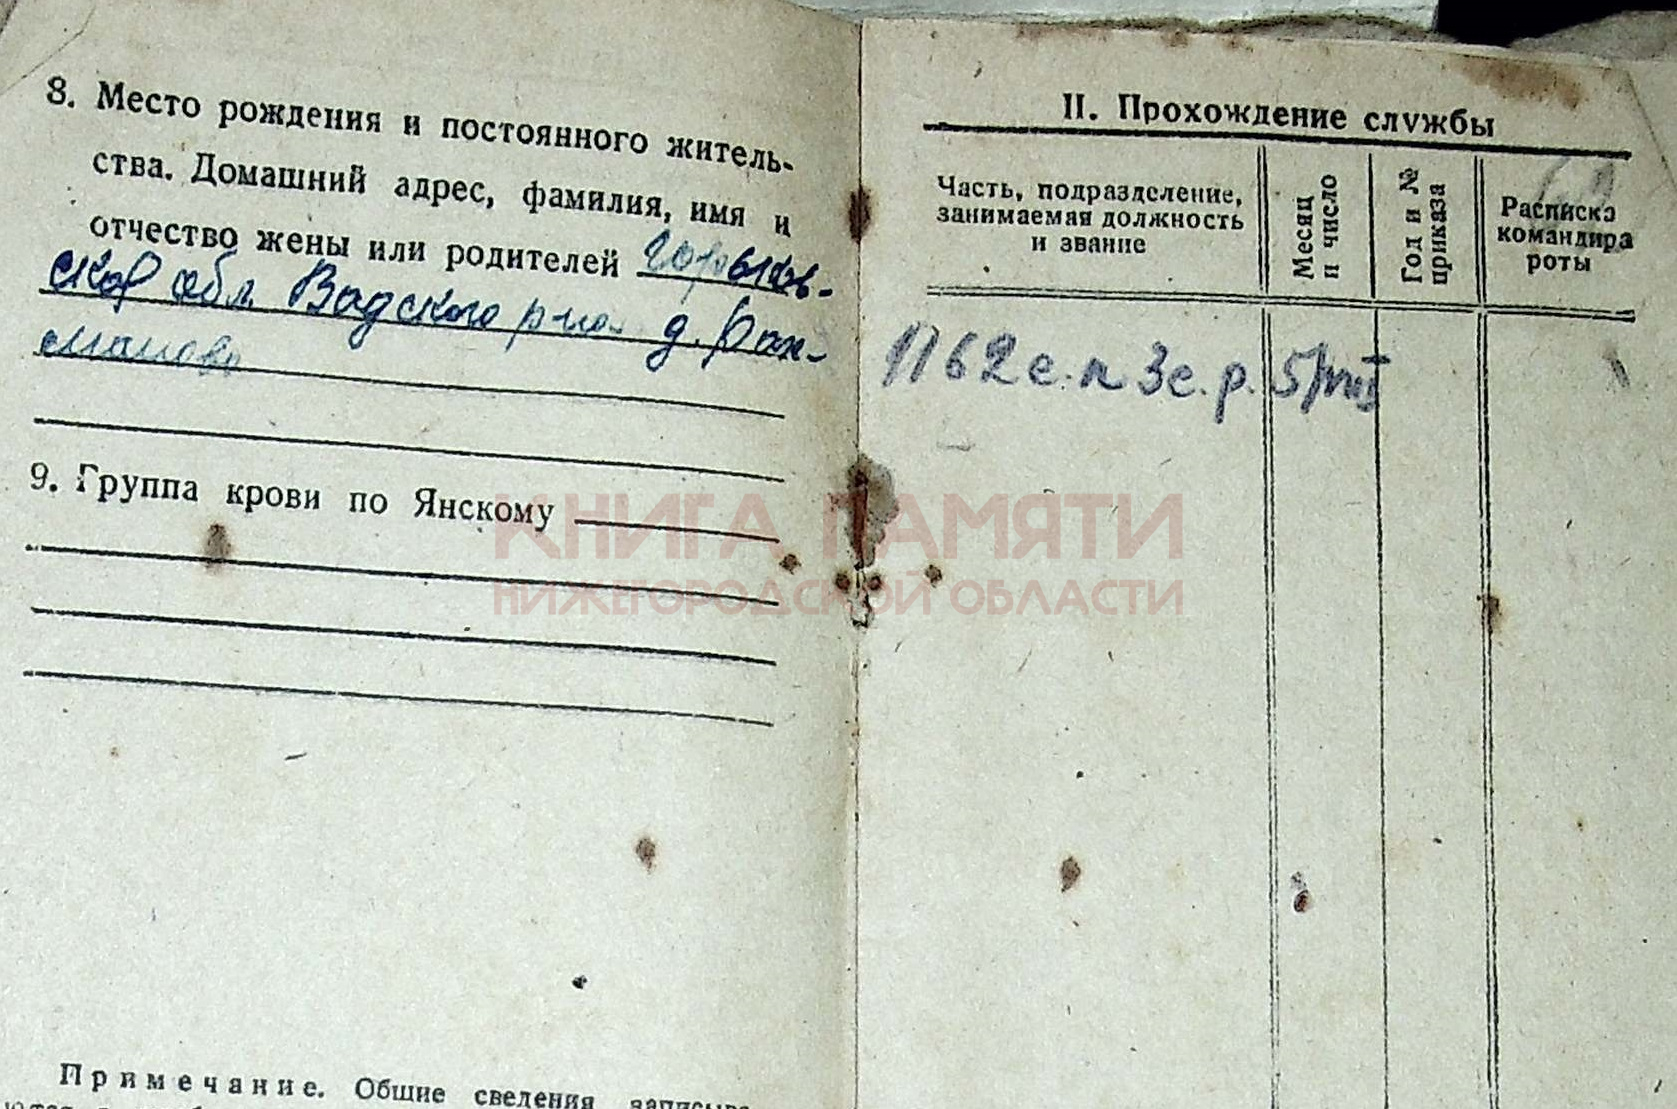 8. Место рождения и постоянного житель-
ства. Домашний адрес, фамилия, имя и
отчество жены или родителей Горьков-
ской обл. Вадского р-на д. Рах-
маново
9. Группа крови по Янскому
Примечание. Общие сведения
II. Прохождение службы
Часть, подразделение,
занимаемая должность
и звание
Месяц
и число
Год и №
приказа
Расписка
командира
роты
1162 с.п 3 с.р. 5/VIII
КНИГА ПАМЯТИ
НИЖЕГОРОДСКОЙ ОБЛАСТИ